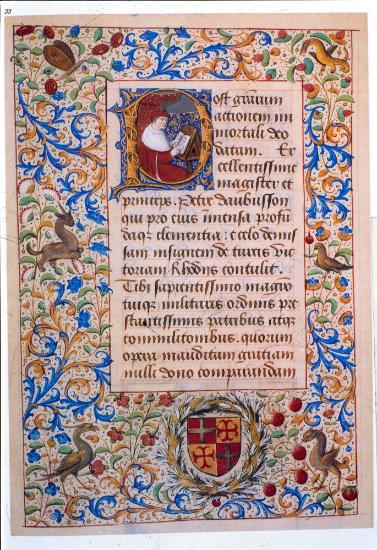 33
Post gratum
actionem im
mortali deo
datam. Ex
cellentissime
magister et
princeps. Petre daubusson
qui pro eius immensa profu
daque clementia: e celo demis
sam insignem de turcis vic
toriam Rhodijs contulit.
Tibi sapientissimo magno
tuique militaris ordinis pre
stantissimis patribus atque
commilitonibus. quorum
opera
nulli dono comparandam